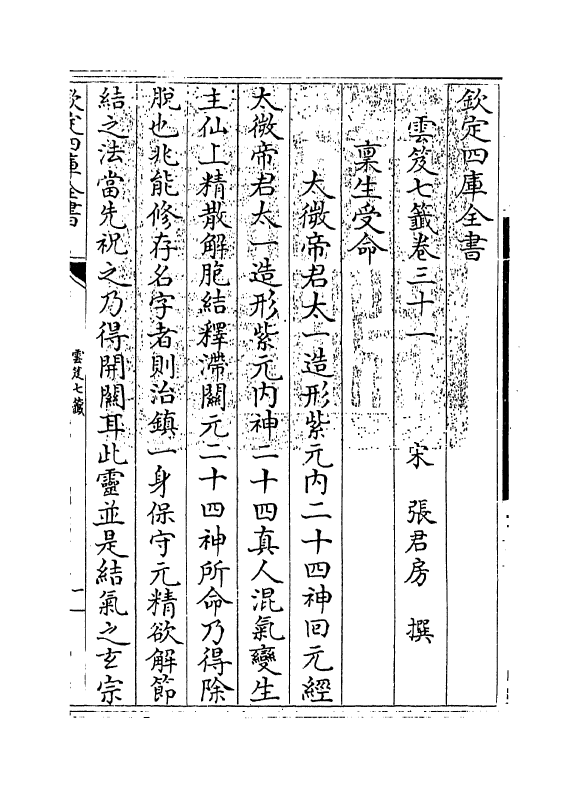 欽定四庫全書
雲笈七籤卷三十一 宋 張君房 撰
稟生受命
太微帝君太一造形紫元内二十四神回元經
太微帝君太一造形紫元内神二十四真人混氣變生
主仙上精散解胞結釋滯關元二十四神所命乃得除
脫也兆能修存名字者則治鎮一身保守元精欲解節
結之法當先祝之乃得開關耳此靈並是結氣之玄宗
欽定四庫全書
雲笈七籤
一